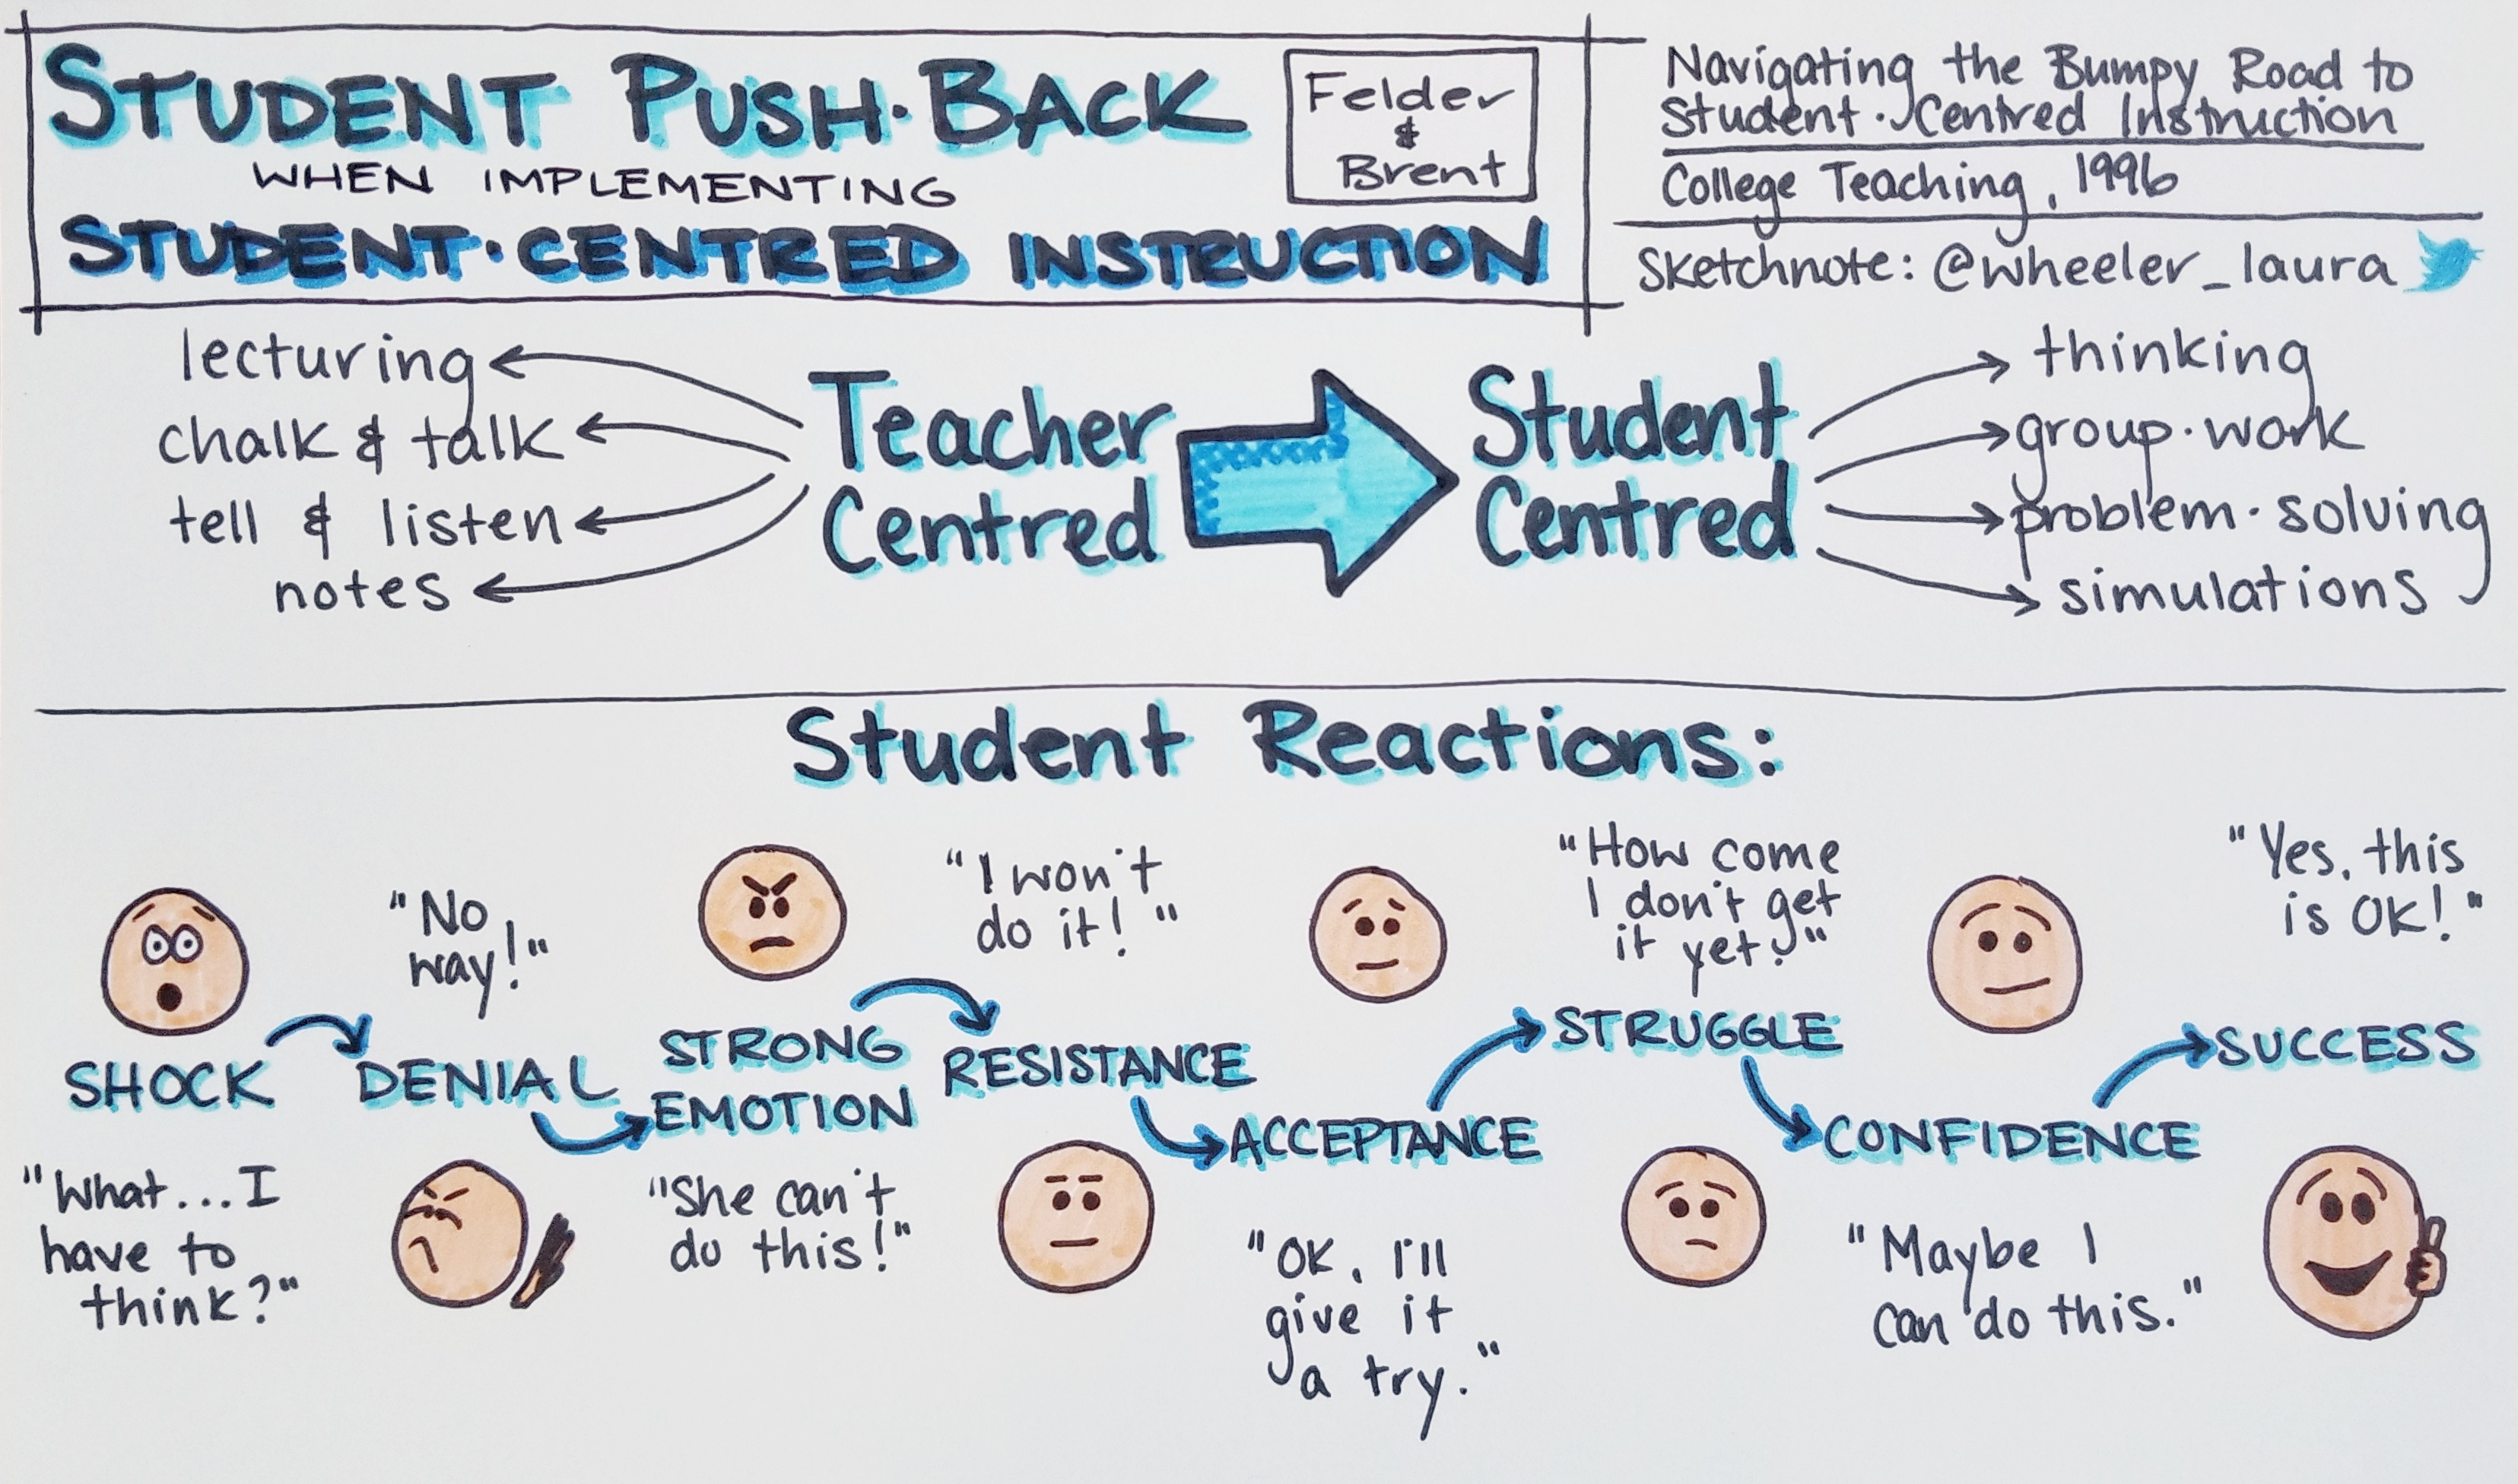 STUDENT PUSH·BACK
WHEN IMPLEMENTING
STUDENT·CENTRED INSTRUCTION
Felder
&
Brent
Navigating the Bumpy Road to
Student·Centred Instruction
College Teaching, 1996
Sketchnote: @wheeler_laura
lecturing
chalk & talk
tell & listen
notes
Teacher
Centred
Student
Centred
thinking
group·work
problem·solving
simulations
Student Reactions:
SHOCK
"What...I
have to
think?"
"No
way!"
DENIAL
STRONG
EMOTION
"She can't
do this!"
"I won't
do it!"
RESISTANCE
ACCEPTANCE
"OK, I'll
give it
a try."
"How come
I don't get
it yet?"
STRUGGLE
CONFIDENCE
"Maybe I
can do this."
"Yes, this
is OK!"
SUCCESS